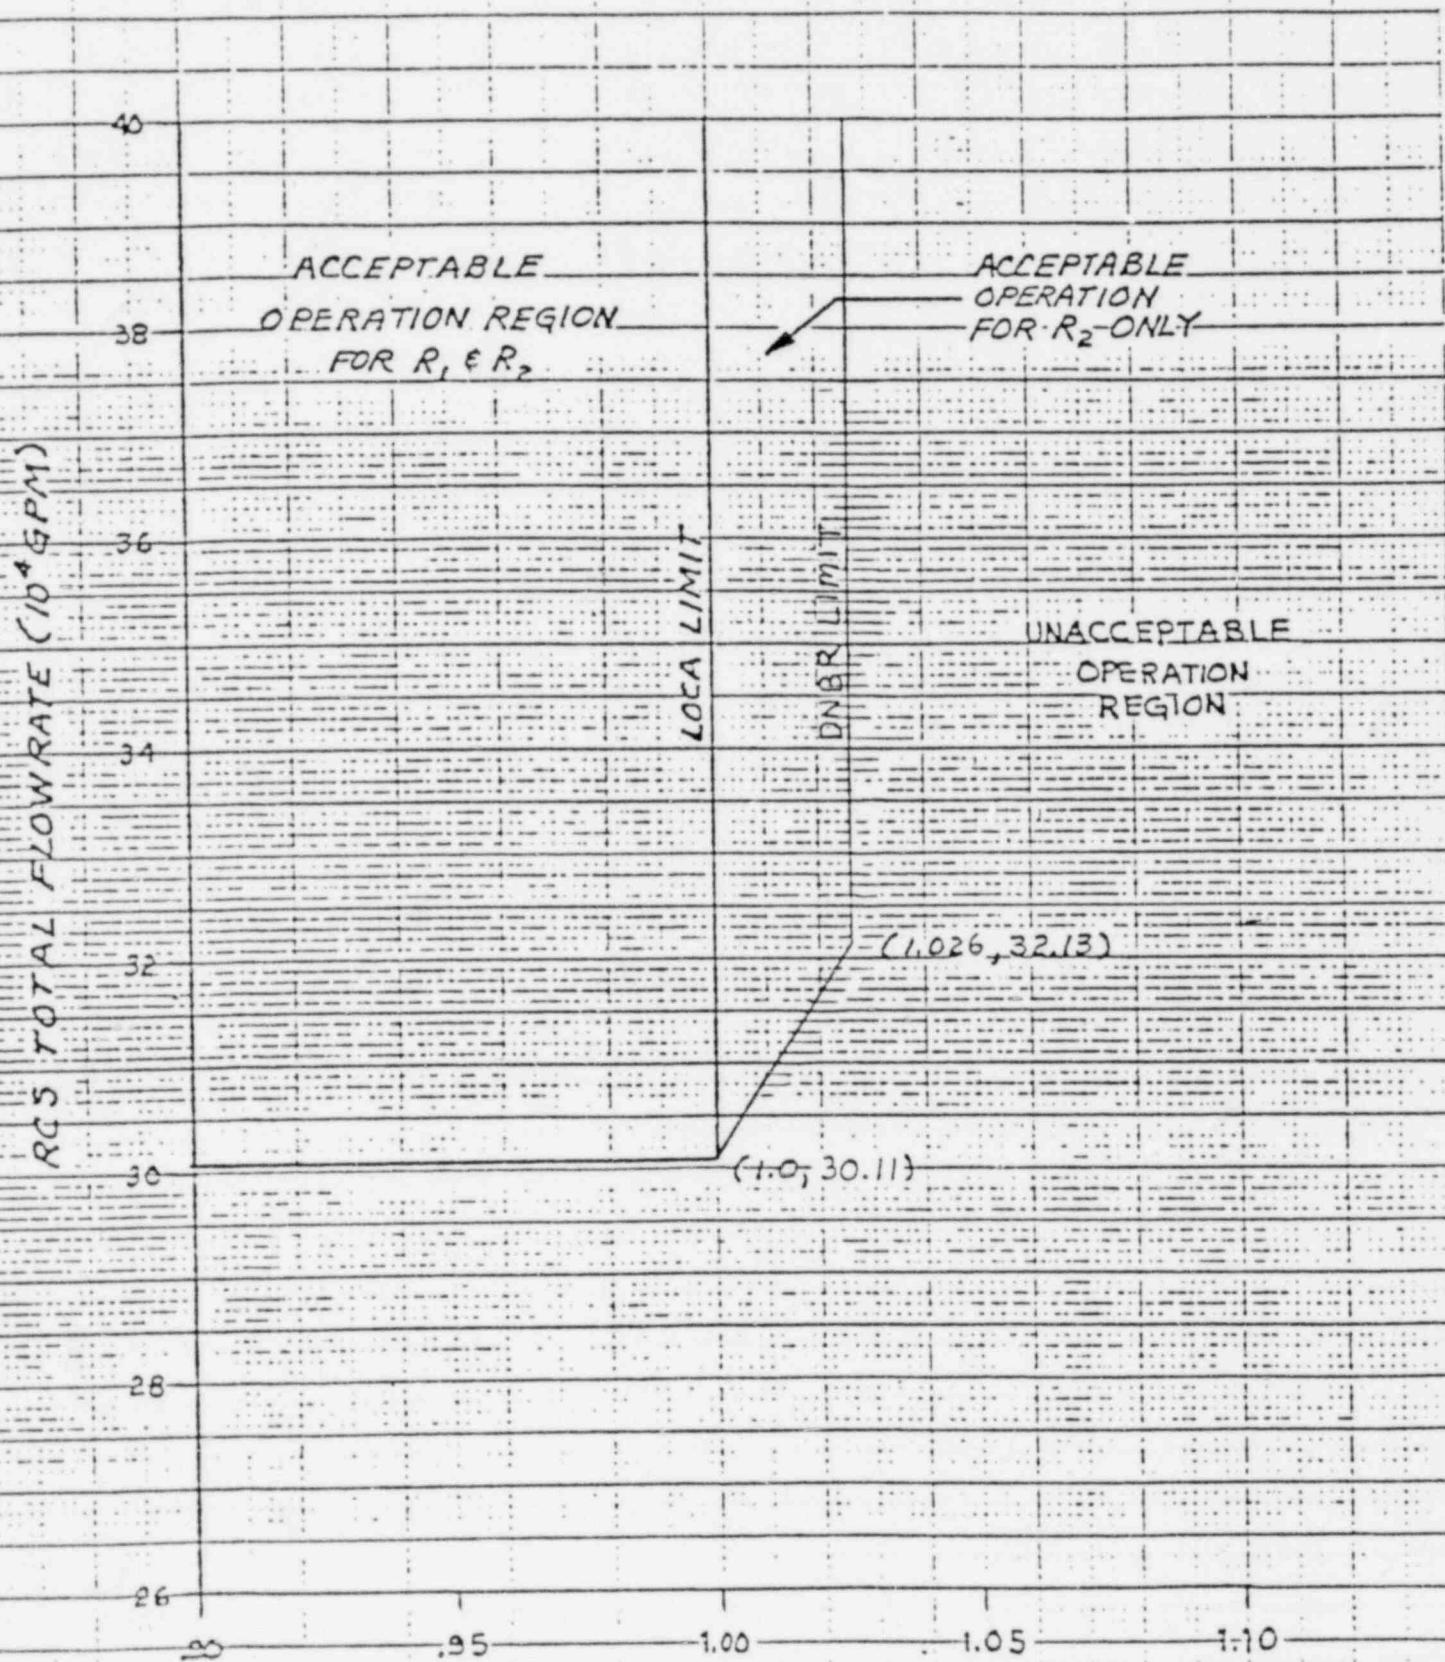 40
38
36
34
32
30
28
26
RCS TOTAL FLOWRATE (10⁴ GPM)
ACCEPTABLE
OPERATION REGION
FOR R₁ & R₂
ACCEPTABLE
OPERATION
FOR R₂ ONLY
LOCA LIMIT
DNBR LIMIT
UNACCEPTABLE
OPERATION
REGION
(1.026, 32.13)
(1.0, 30.11)
.95
1.00
1.05
1.10